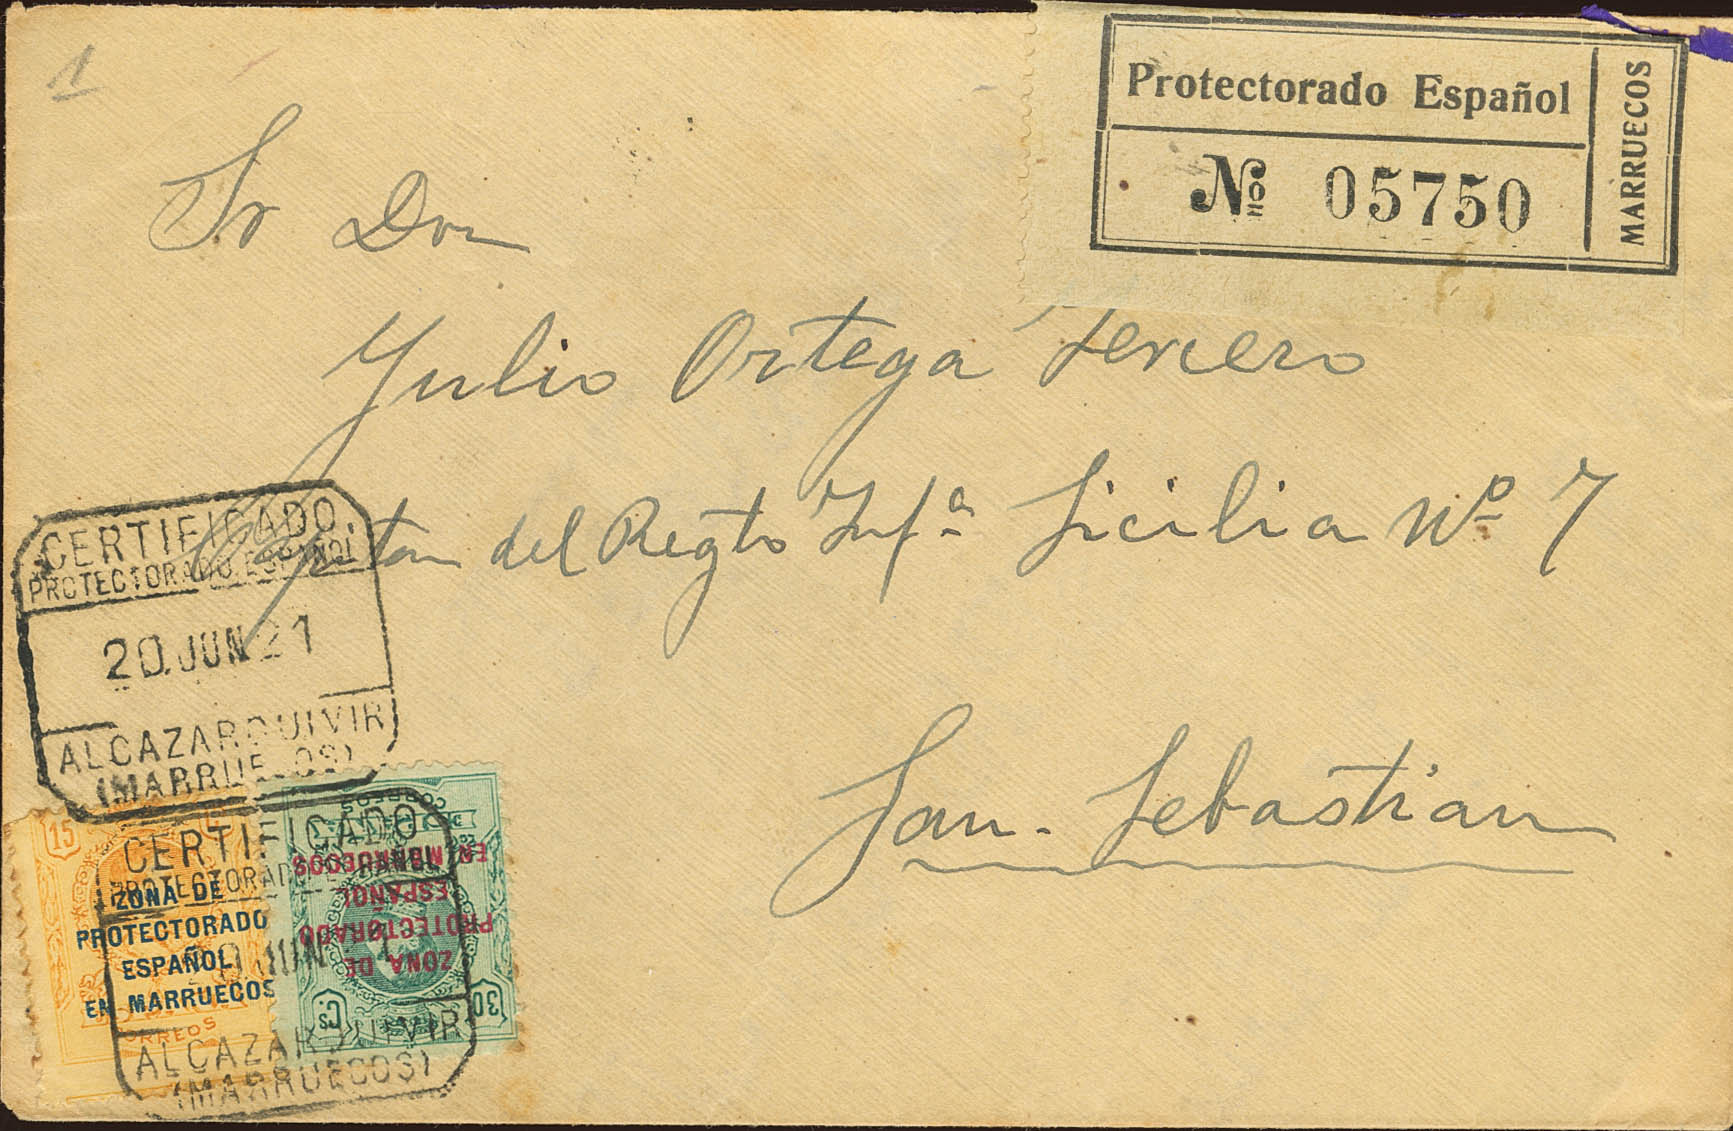 1
Protectorado Español
MARRUECOS
Nº 05750
Sr Don
Julio Ortega Tercero
Capitan del Regto Infª Sicilia Nº 7
San-Sebastian
CERTIFICADO
PROTECTORADO ESPAÑOL
20.JUN 21
ALCAZARQUIVIR
(MARRUECOS)
15
ZONA DE
PROTECTORADO
ESPAÑOL
EN MARRUECOS
CORREOS
CORREOS
ZONA DE
PROTECTORADO
ESPAÑOL
EN MARRUECOS
30
Cs
CERTIFICADO
PROTECTORADO ESPAÑOL
20 JUN 21
ALCAZARQUIVIR
(MARRUECOS)